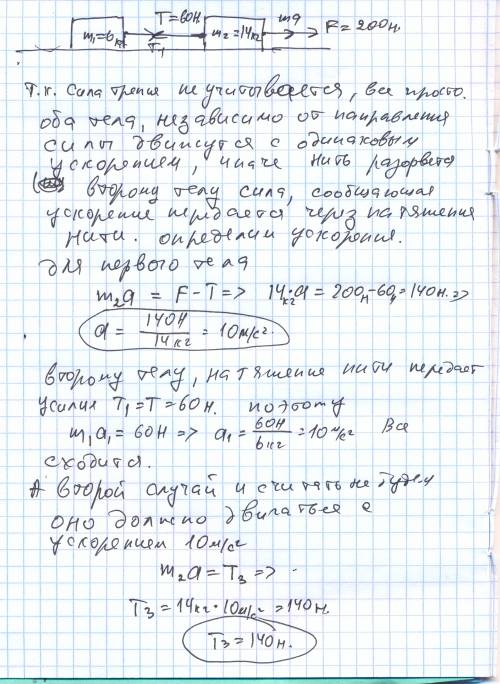 m₁=6кг T=60Н T₁ m₂=14кг ma F=200н.
Т.к. сила трения не учитывается, все просто.
оба тела, независимо от направления
силы движутся с одинаковым
ускорением, иначе нить разорвется
второму телу сила, сообщающая
ускорение передается через натяжения
нити. определим ускорения.
для первого тела
m₂a = F-T => 14кг·a = 200н-60н=140н. =>
a = 140Н/14кг = 10м/с².
второму телу, натяжение нити передает
усилия T₁=T=60н. поэтому
m₁a₁ = 60Н => a₁ = 60Н/6кг = 10м/с² Все
сходится.
А второй случай и считать не будем
оно должно двигаться с
ускорением 10м/с²
m₂a = T₃ =>
T₃ = 14кг·10м/с² = 140н.
T₃ = 140н.